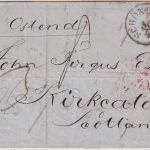 Ostend
John Fergus Es
Kirkcald
Scotlan